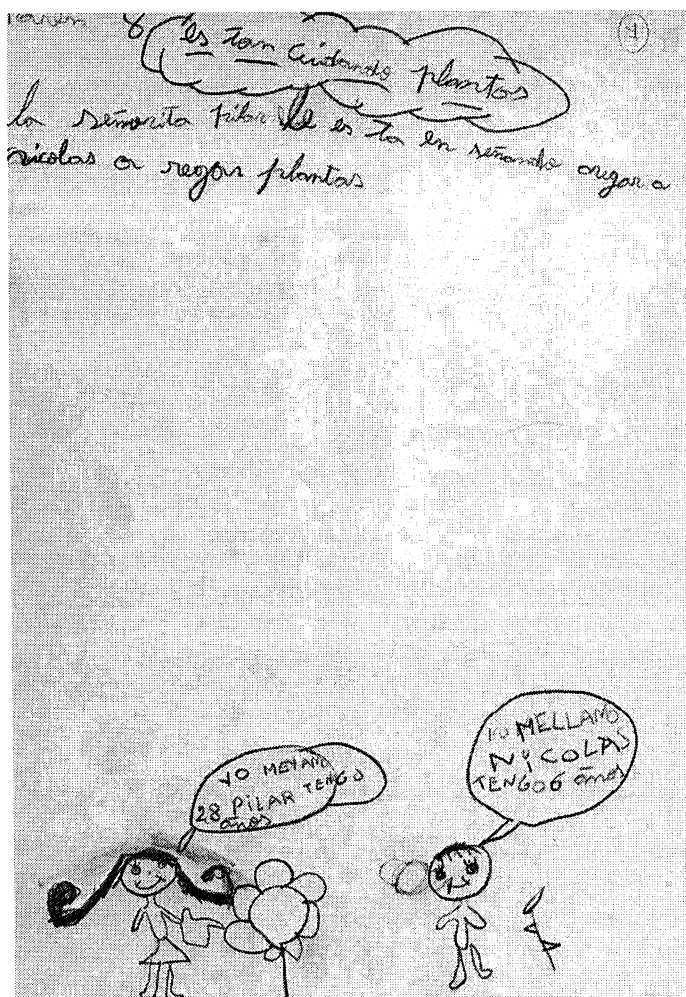 8
es tan cuidando plantas
la señorita pilar le es ta en señando aregar a
nicolas a regar plantas
YO MEYAMO
PiLAR TENGO
28 años
YO MELLAMO
NiCOLAS
TENGO 6 años